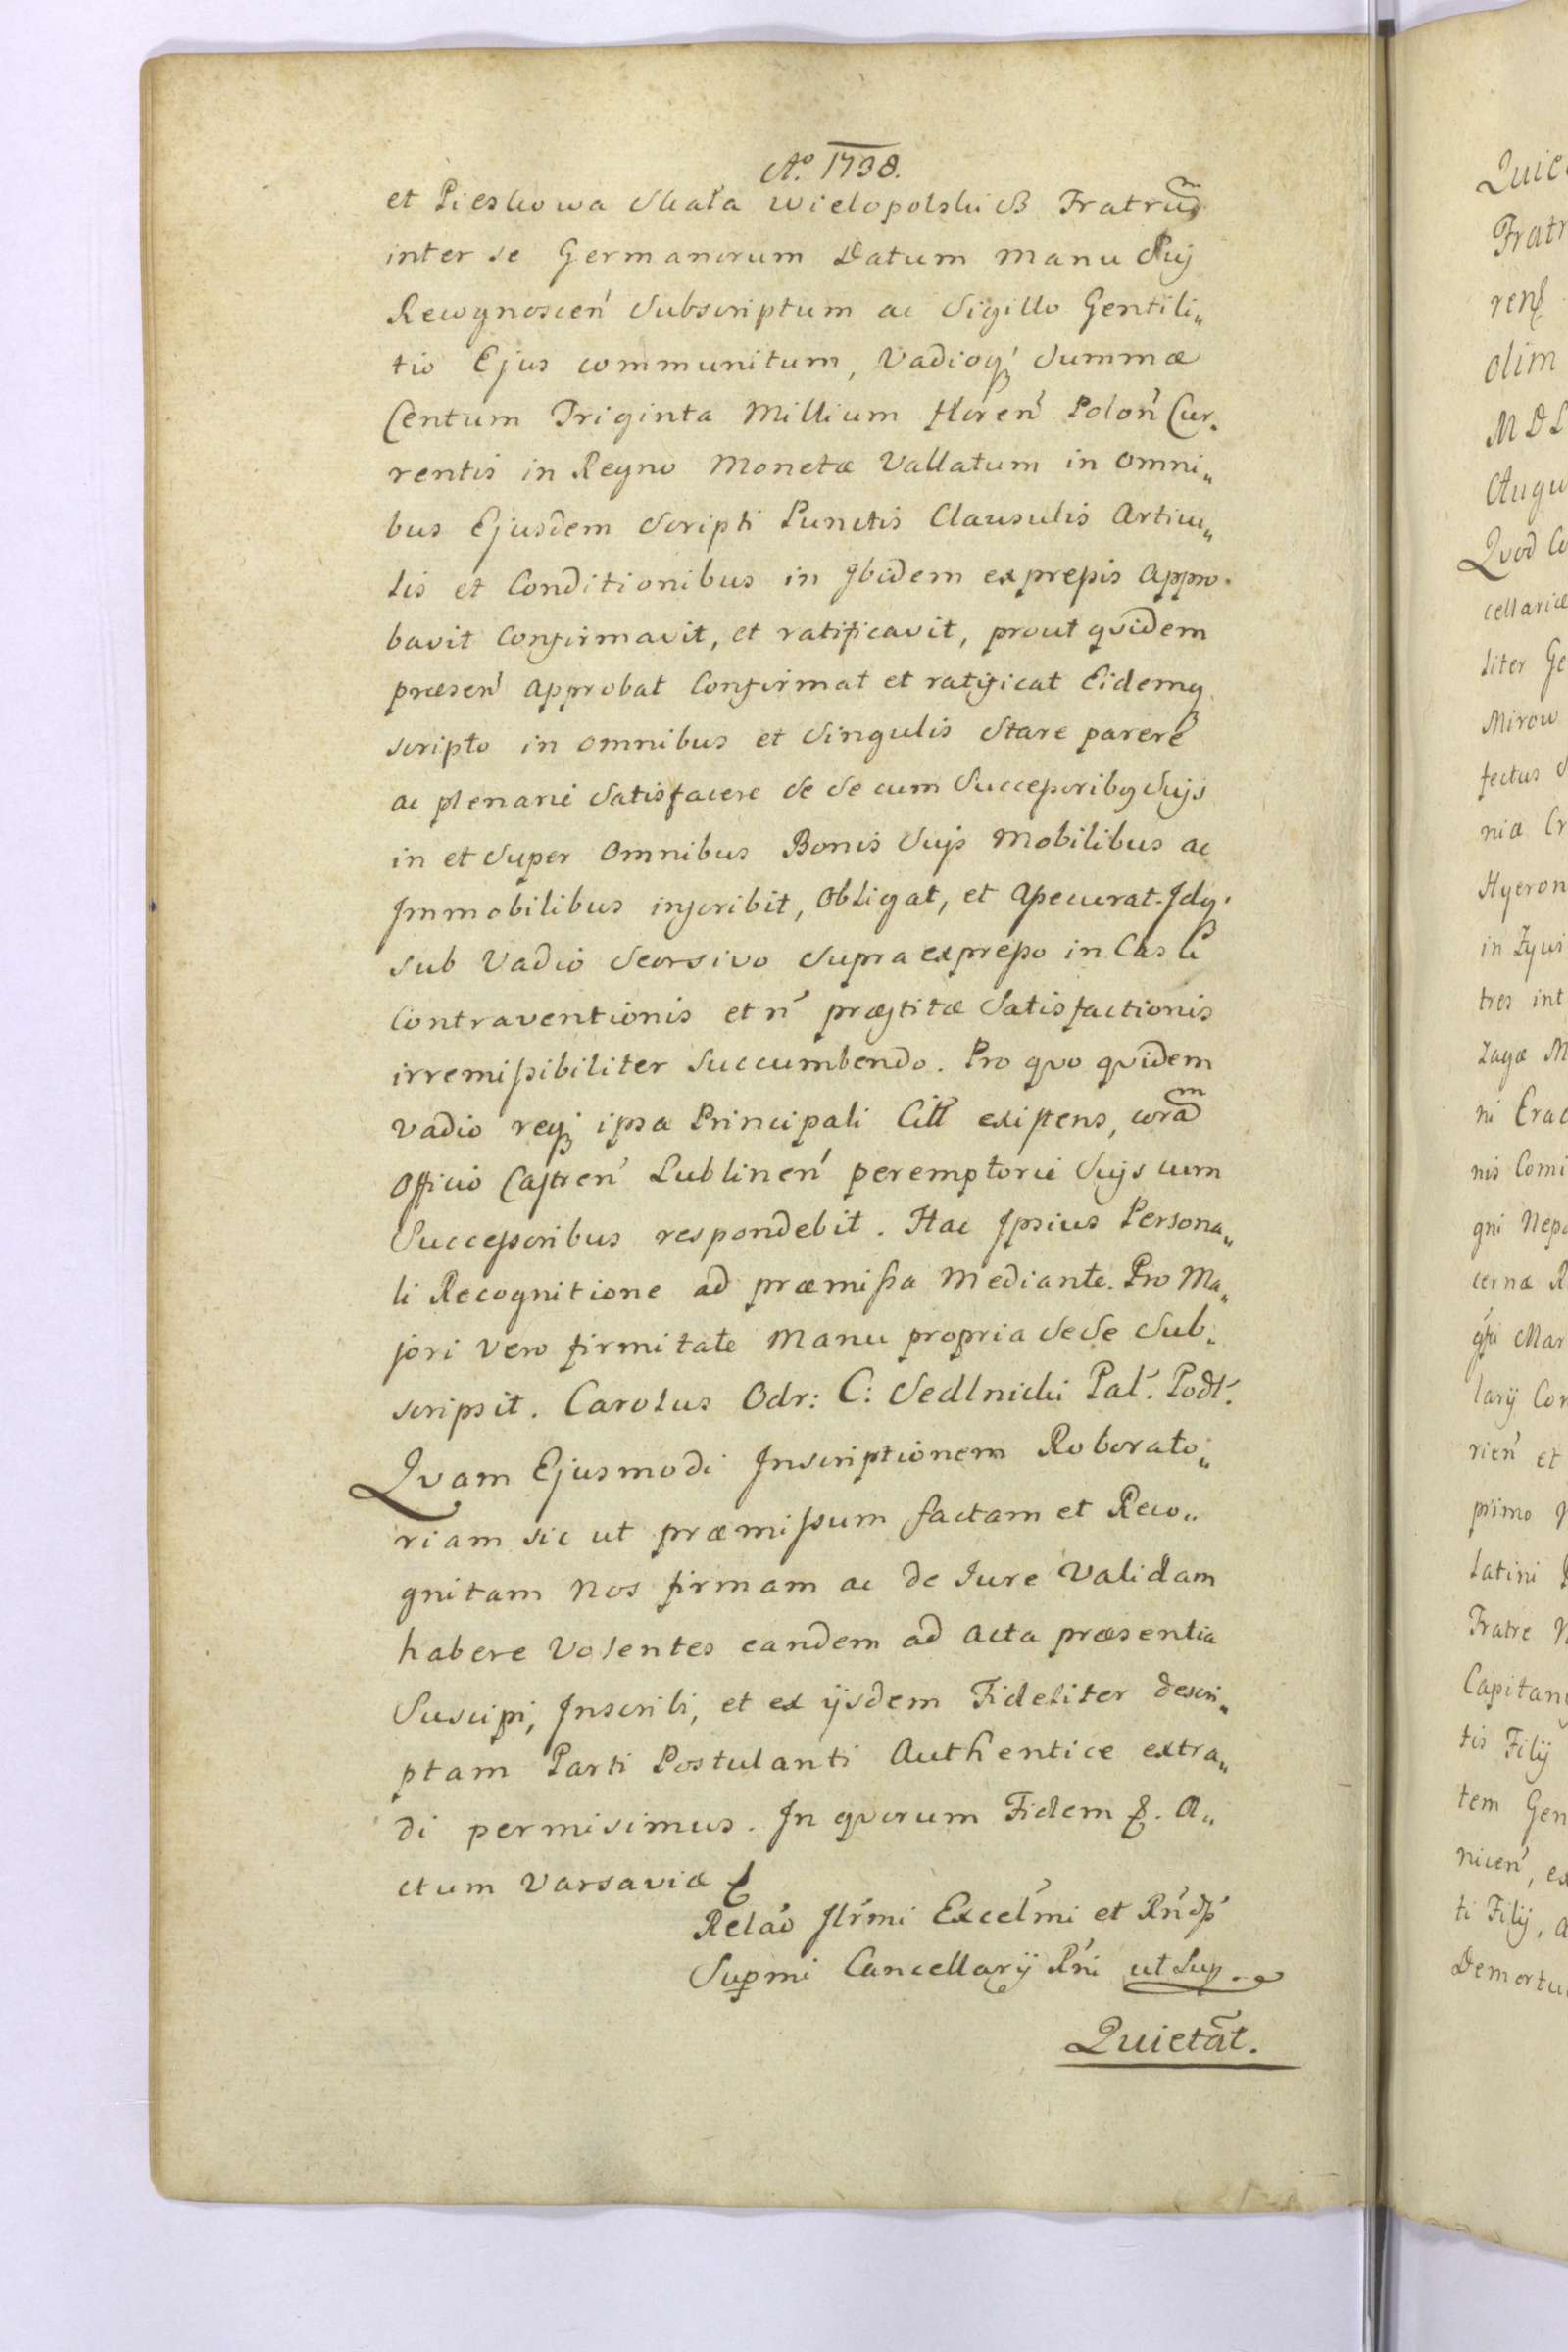 Aº. 1738.
et Pieskowa Skała Wielopolskich Fratrum
inter se Germanorum Datum Manu Sui
Recognoscen̍ Subscriptum ac Sigillo Gentili„
tio Ejus communitum, Vadioq̍ Summæ
Centum Triginta Millium floren̍ Polon̍ Cur„
rentis in Regno Monetæ Vallatum in omni„
bus Ejusdem Scripti Punctis Clausulis Articu„
lis et Conditionibus in Ibidem expressis Appro„
bavit Confirmavit, et ratificavit, prout qvidem
præsen̍ Approbat Confirmat et ratificat Eidemq̍
scripto in omnibus et Singulis Stare parere
ac plenarie Satisfacere Se Se cum Successoribq Suijs
in et Super Omnibus Bonis Suijs Mobilibus ac
Immobilibus inscribit, Obligat, et Assecurat. Idq̍
sub Vadio Seorsivo Supra expresso in Casu
Contraventionis et n̍ præstitæ Satisfactionis
irremissibiliter Succumbendo. Pro quo qvidem
Vadio req̍ ipsa Principali Citt̍ existens, coram
Officio Castren̍ Lublinen̍ peremptorie Suijs cum
Successoribus respondebit. Hac Ipsius Persona„
li Recognitione ad præmissa Mediante. Pro Ma„
jori vero firmitate Manu propria Se Se Sub„
scripsit. Carolus Odr: C: Sedlnicki Pal̍. Podl̍.
Qvam Ejusmodi Inscriptionem Roborato„
riam sic ut præmissum factam et Reco„
gnitam Nos firmam ac de Jure Validam
habere Volentes eandem ad Acta præsentia
Suscipi, Inscribi, et ex ijsdem Fideliter descri„
ptam Parti Postulanti Authentice extra„
di permisimus. In qvorum Fidem &. A„
ctum Varsaviæ &
Relão Ilr̍mi Excel̍mi et Rn̍d̍
Supmi Cancellarij R̍ni ut Sup.
Quietãt.